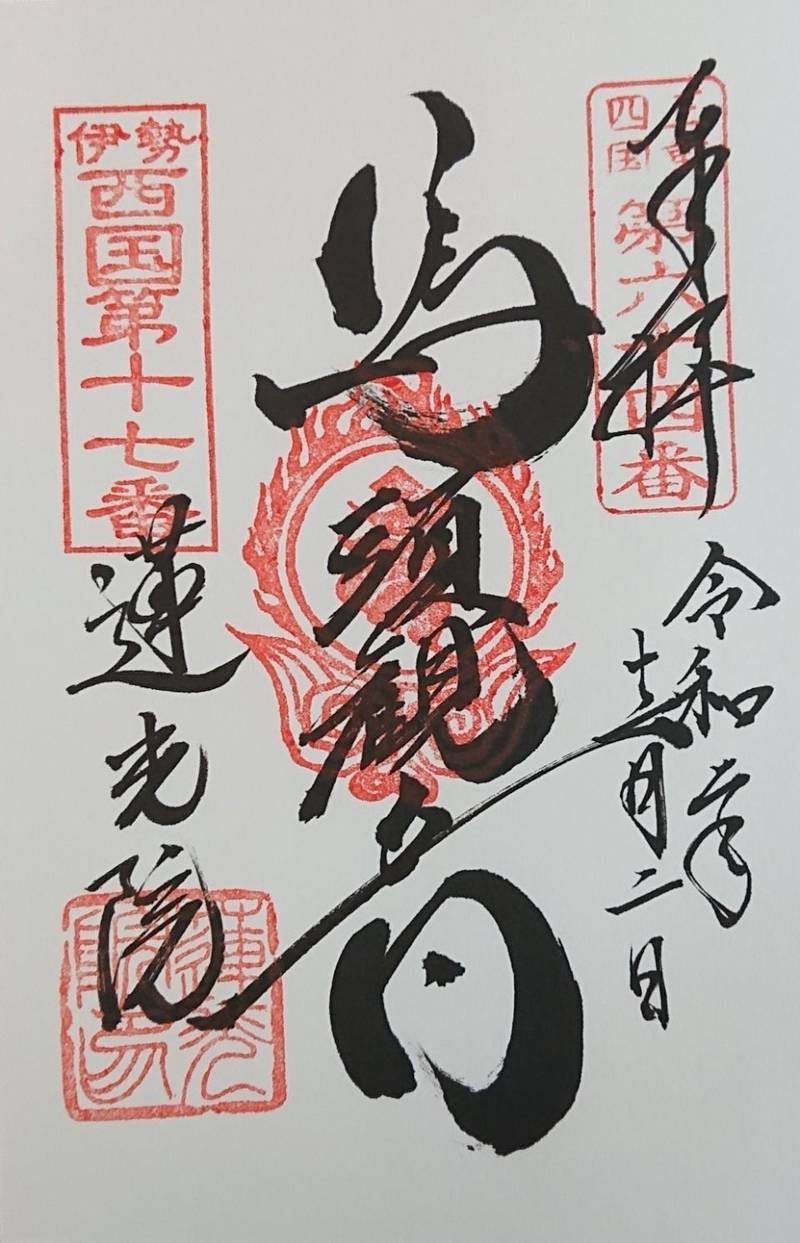 奉拝
三重
四国
第六十四番
令和二年
十二月二日
馬頭観音
伊勢
西国第十七番
蓮光院
蓮光
院印